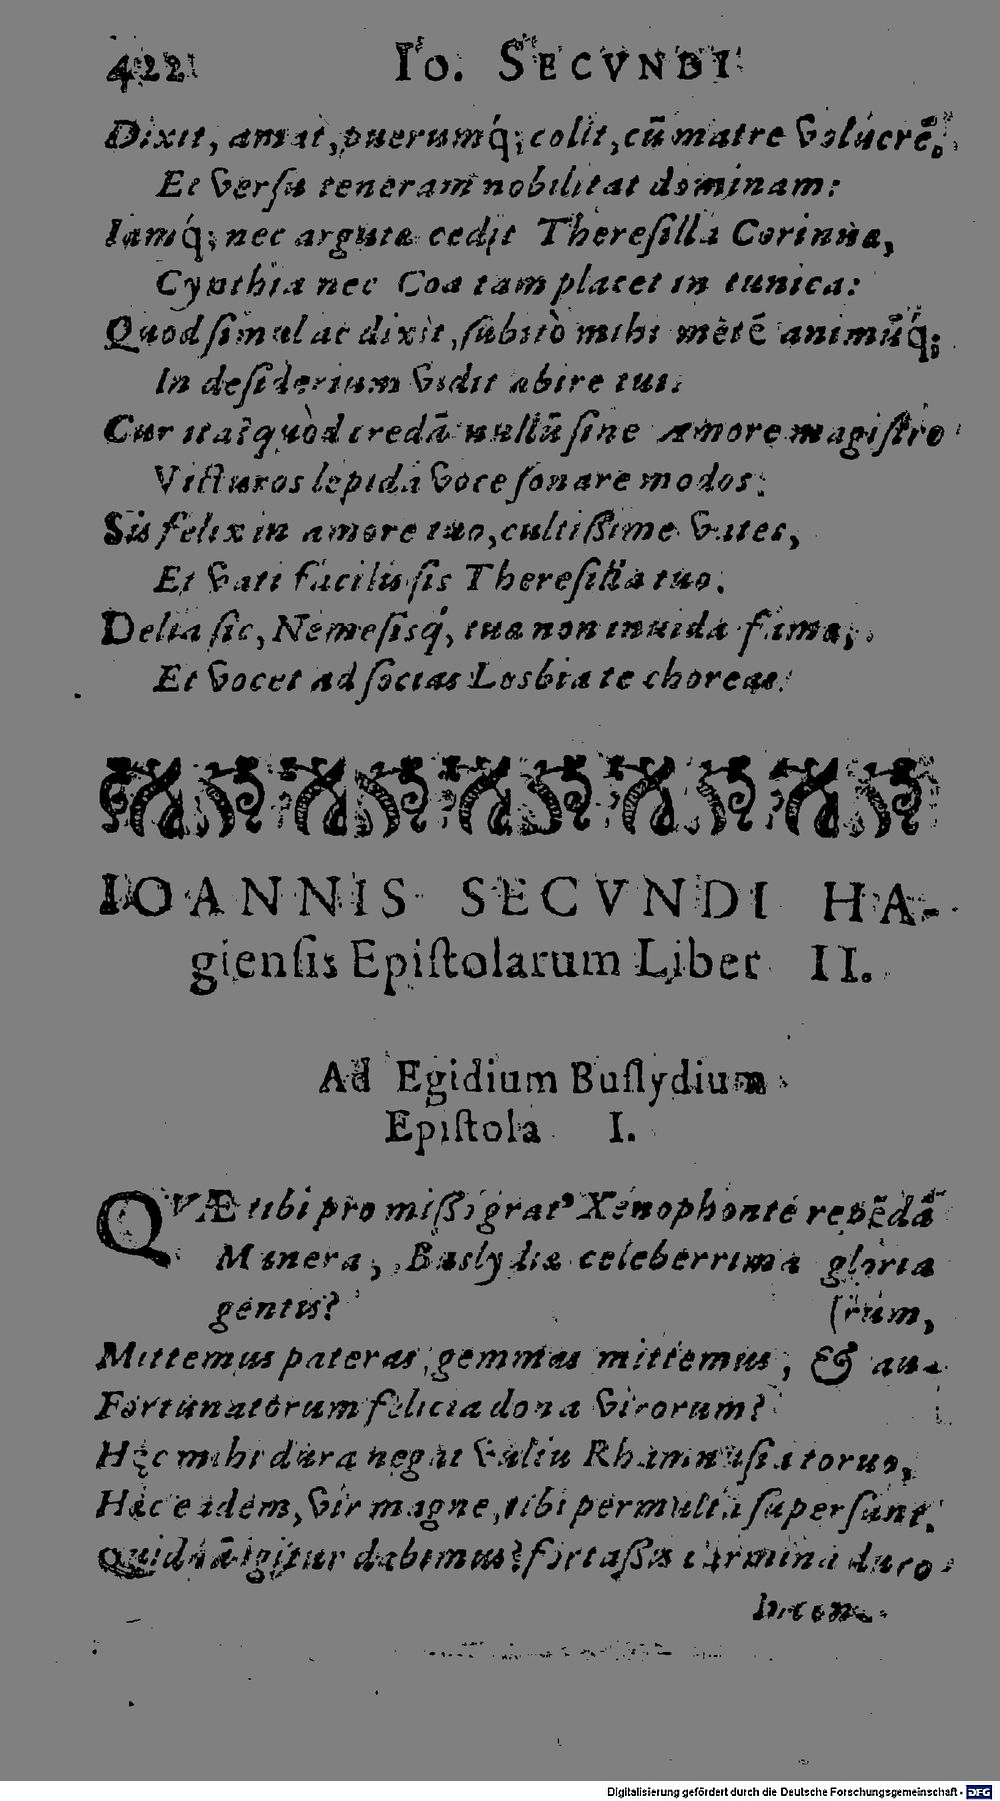 422 Io. SECVNDI
Dixit, amat, puerumq́; colit, cū matre volucrē.
Et versu teneram nobilitat dominam:
Iamq́; nec argutæ cedit Theresilla Corinnæ,
Cynthia nec Coa tam placet in tunica:
Quod simul ac dixit, subitò mihi mētē animūq́;
In desiderium vidit abire tui.
Cur ita? quòd credā nullū sine Amore magistro
Victuros lepida voce sonare modos:
Sis felix in amore tuo, cultißime vates,
Et vati facilis sis Theresilla tuo.
Delia sic, Nemesisq́, tuæ non inuida famæ,
Et vocet ad socias Losbia te choreas.
IOANNIS SECVNDI HA-
giensis Epistolarum Liber II.
Ad Egidium Buslydium
Epistola I.
QVÆ tibi pro mißi grat' Xenophonte repēdā
Munera, Buslydiæ celeberrima gloria
gentis? (rum,
Mittemus pateras, gemmas mittemus, & au-
Fortunatorum felicia dona virorum?
Hęc mihi dura negat vultu Rhamnusia toruo,
Hæc eadem, vir magne, tibi permulta supersunt.
Quid nā igitur dabimus? fortaßis carmina duro